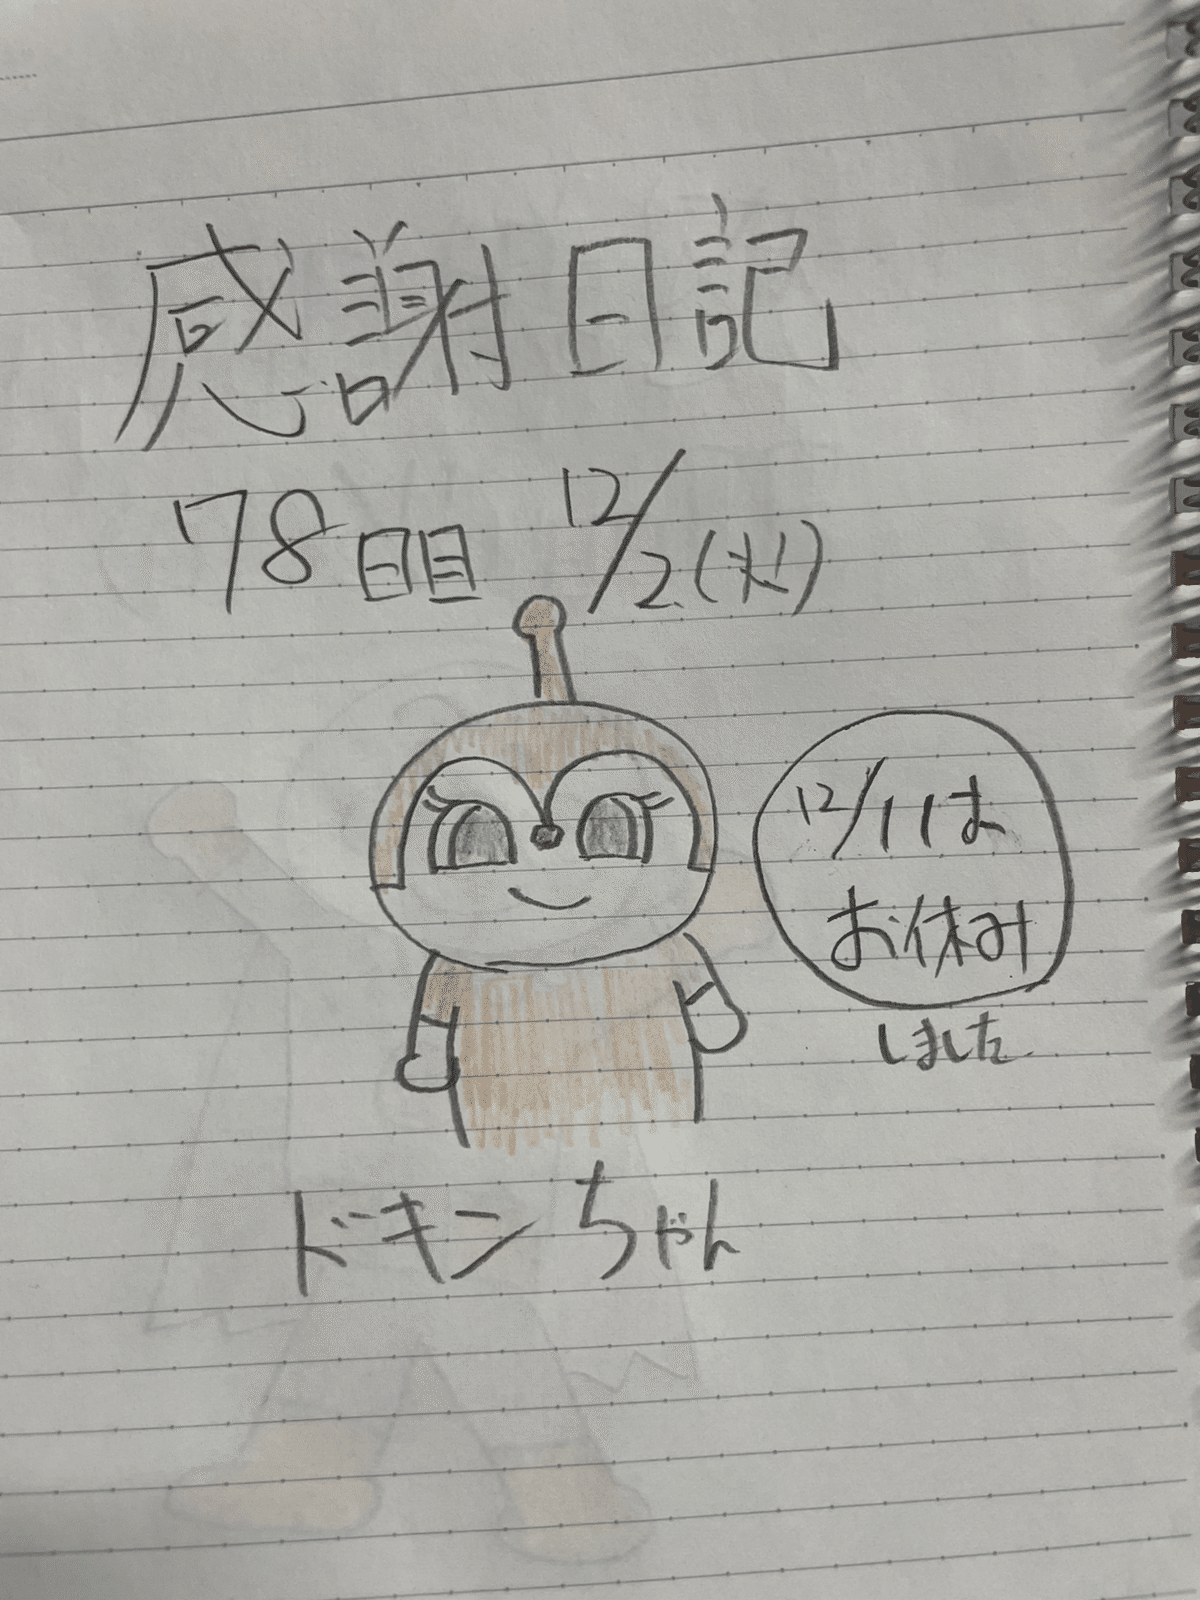 感謝日記
78日目 12/2(火)
12/1は
お休み
しました
ドキンちゃん